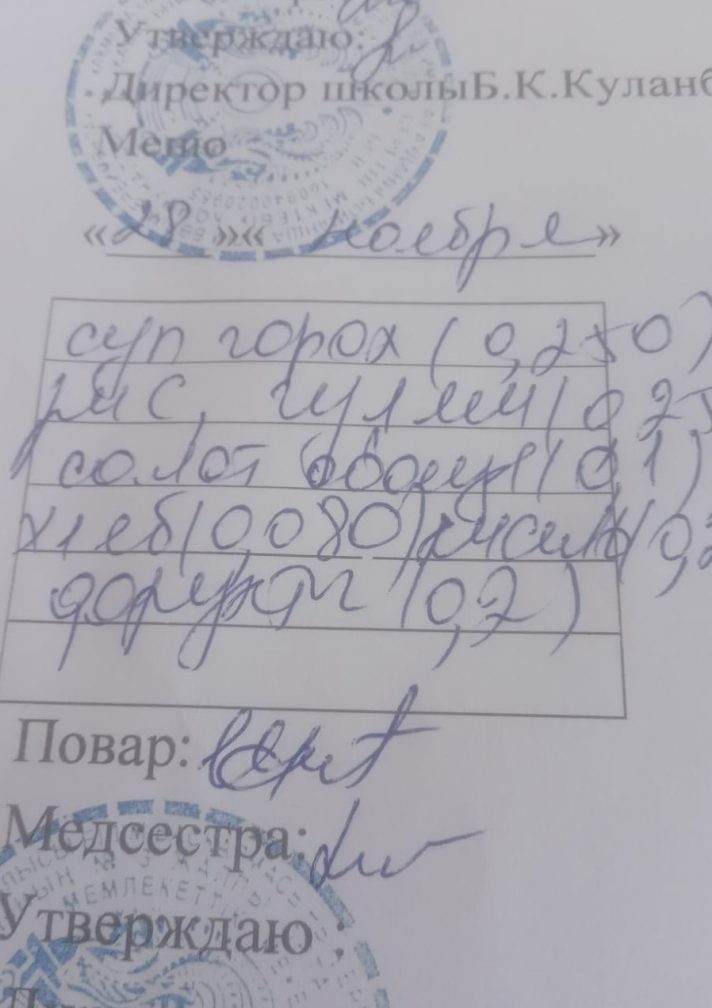 Утверждаю:
Директор школыБ.К.Куланб
Меню
«28»« ноября»
суп горох (0,250)
рис, гуляш (0,25
солот (0,1)
хлеб (0,080) кисель (0,2
(0,2)
Повар:
Медсестра:
МЕМЛЕКЕТТ
Утверждаю :